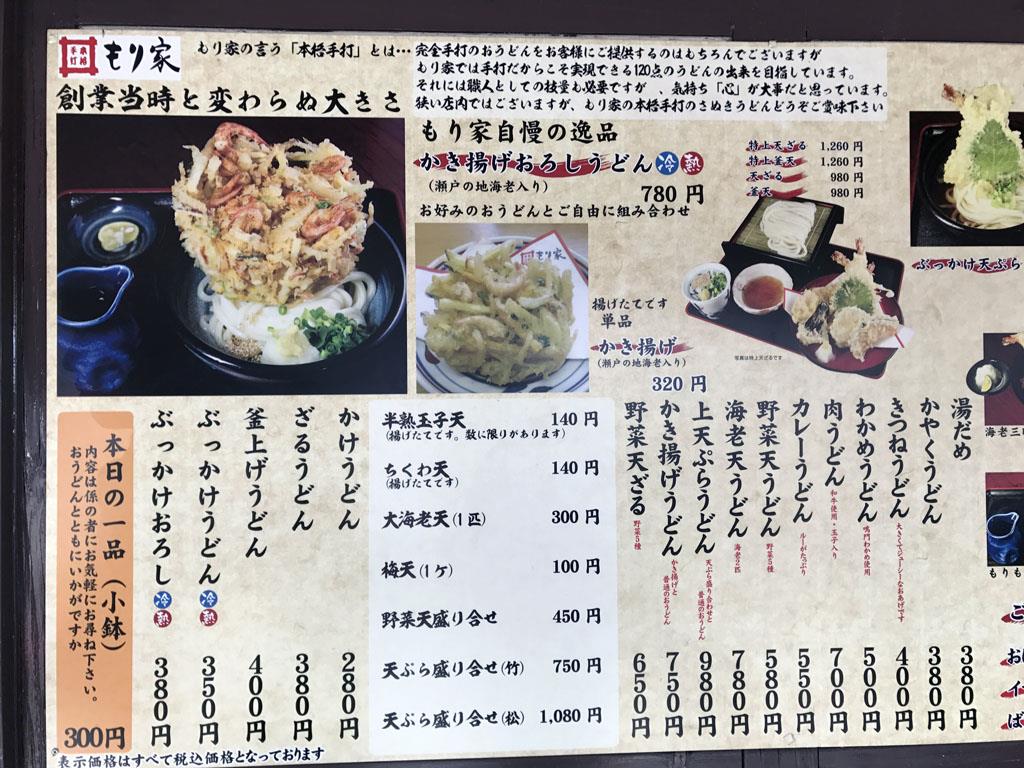 本格手打
もり家
もり家の言う「本格手打」とは…
完全手打のおうどんをお客様にご提供するのはもちろんでございますが
もり家では手打だからこそ実現できる120点のうどんの出来を目指しています。
それには職人としての技量も必要ですが、気持ち「心」が大事だと思っています。
狭い店内ではございますが、もり家の本格手打のさぬきうどんどうぞご賞味下さい
創業当時と変わらぬ大きさ
もり家自慢の逸品
かき揚げおろしうどん 冷 熱
(瀬戸の地海老入り)
780円
お好みのおうどんとご自由に組み合わせ
特上天ざる 1,260円
特上釜天 1,260円
天ざる 980円
釜天 980円
もり家
揚げたてです
単品
かき揚げ
(瀬戸の地海老入り)
320円
写真は特上天ざるです
ぶっかけ天ぷら
海老三
もりも
本日の一品(小鉢)
内容は係の者にお気軽にお尋ね下さい。
おうどんとともにいかがですか
300円
かけうどん 280円
ざるうどん 380円
釜上げうどん 400円
ぶっかけうどん 冷 熱 350円
ぶっかけおろし 冷 熱 380円
半熟玉子天 140円
(揚げたてです。数に限りがあります)
ちくわ天 140円
(揚げたてです)
大海老天(1匹) 300円
梅天(1ケ) 100円
野菜天盛り合せ 450円
天ぷら盛り合せ(竹) 750円
天ぷら盛り合せ(松) 1,080円
湯だめ 380円
かやくうどん 380円
きつねうどん 大きくてジューシーなおあげです 400円
わかめうどん 鳴門わかめ使用 500円
肉うどん 和牛使用・玉子入り 700円
カレーうどん ルーがたっぷり 550円
野菜天うどん 野菜5種 580円
海老天うどん 海老2匹 780円
上天ぷらうどん 天ぷら盛り合わせと普通のおうどん 980円
かき揚げうどん かき揚げと普通のおうどん 750円
野菜天ざる 野菜5種 650円
表示価格はすべて税込価格となっております